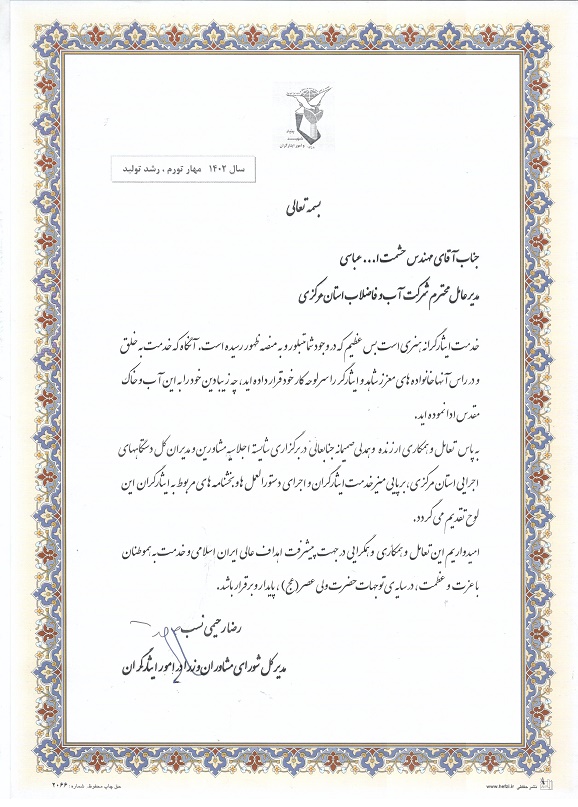 بنیاد
شهید
و امور ایثارگران
سال ۱۴۰۲ مهار تورم ، رشد تولید
بسمه تعالی
جناب آقای مهندس حشمت ا... عباسی
مدیرعامل محترم شرکت آب و فاضلاب استان مرکزی
خدمت ایثارگرانه هنری است بس عظیم که در وجود شما متبلور و به منصه ظهور رسیده است، آنگاه که خدمت به خلق
و در راس آنها خانواده های معزز شاهد و ایثارگر را سرلوحه کار خود قرار داده اید، چه زیبا دین خود را به این آب و خاک
مقدس ادا نموده اید.
به پاس تعامل و همکاری ارزنده و همدلی صمیمانه جنابعالی در برگزاری شایسته اجلاسیه مشاورین و مدیران کل دستگاههای
اجرایی استان مرکزی، برپایی میز خدمت ایثارگران و اجرای دستورالعمل ها و بخشنامه های مربوط به ایثارگران این
لوح تقدیم می گردد.
امیدواریم این تعامل و همکاری و همگرایی در جهت پیشرفت اهداف عالی ایران اسلامی و خدمت به هموطنان
با عزت و عظمت، در سایه ی توجهات حضرت ولی عصر (عج)، پایدار و برقرار باشد.
رضا رحیمی نسب
مدیر کل شورای مشاوران وزرا در امور ایثارگران
نشر حفظی www.hefzi.ir
حق چاپ محفوظ. شماره: ۲۰۶۶